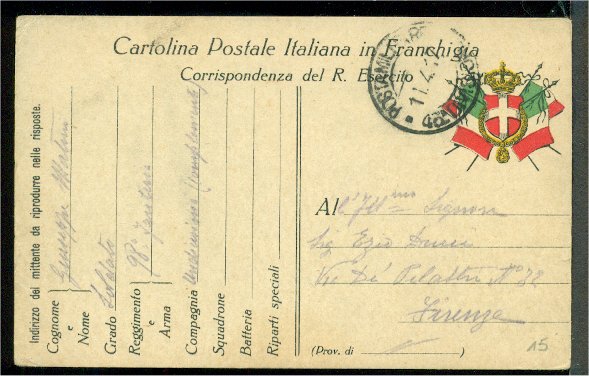 Cartolina Postale Italiana in Franchigia
Corrispondenza del R. Esercito
POSTA MILITARE
11.4.1
Indirizzo del mittente da riprodurre nelle risposte.
Cognome e Nome Giuseppe
Grado Soldato
Reggimento e Arma 98°
Compagnia
Squadrone
Batteria
Riparti speciali
All' Ill^mo Signore
Sig Ezio
Via De' Pilastri N° 32
Firenze
(Prov. di )
15